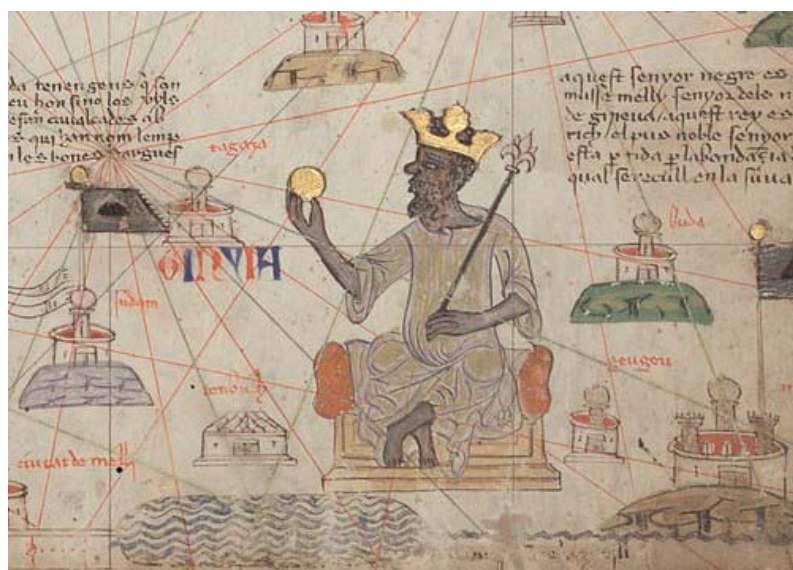 da tenen gens q̃ son
eu hon sino los vyls
e fan caualcades ab
s qui han nom lemp
iles bones dargues
aquest senyor negre es
musse melly senyor dels n
de gineua / aquest rey es
rich / el pus noble senyor
esta ptida p labondazia
qual se recull en la suua
tagaza
GINYIA
buda
sudam
geugeu
tenbuch
ciutat de melly